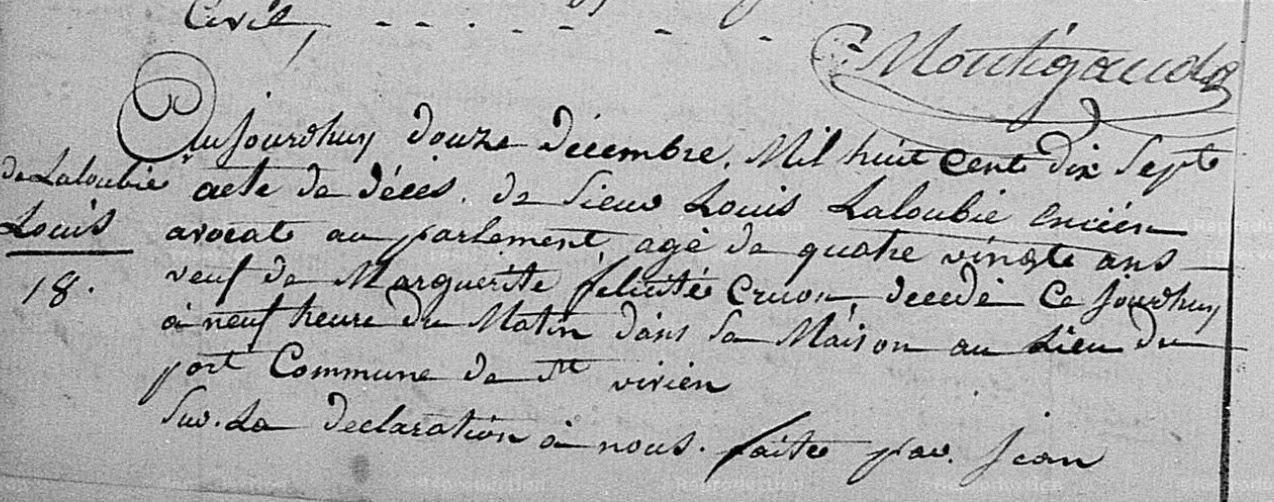 Civil,
Montigaud
Aujourdhuy douze décembre, Mil huit cent dix Sept
de Laloubie
acte de décés. de Sieur Louis Laloubie encién
Louis
avocat au parlement agé de quatre vingts ans
18.
veuf de Marguerite félicité Cruon, decedé Ce jourdhuy
à neuf heure du Matin dans sa Maison au Lieu du
port Commune de St vivien
Sur. La declaration à nous. faite par. Jean